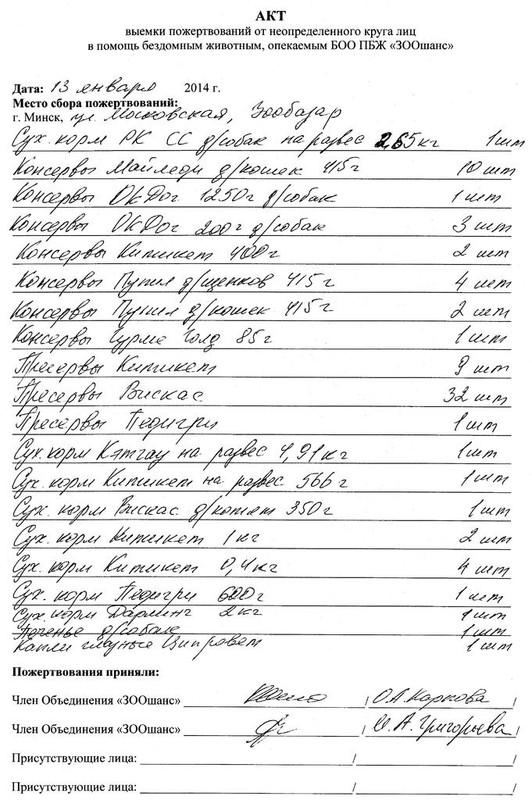 АКТ
выемки пожертвований от неопределенного круга лиц
в помощь бездомным животным, опекаемым БОО ПБЖ «ЗООшанс»
Дата: 13 января 2014 г.
Место сбора пожертвований:
г. Минск, ул. Московская, Зообазар
Сух. корм РК СС д/собак на развес 2,65 кг 1 шт
Консервы Майледи д/кошек 415 г 10 шт
Консервы ОкДог 1250 г д/собак 1 шт
Консервы ОкДог 200 г д/собак 3 шт
Консервы Китикет 400 г 2 шт
Консервы д/щенков 415 г 4 шт
Консервы д/кошек 415 г 2 шт
Консервы Гурме Голд 85 г 1 шт
Пресервы Китикет 9 шт
Пресервы Вискас 32 шт
Пресервы Педигри 1 шт
Сух. корм Кэтчау на развес 4,91 кг 1 шт
Сух. корм Китикет на развес 566 г 1 шт
Сух. корм Вискас д/котят 350 г 1 шт
Сух. корм Китикет 1 кг 2 шт
Сух. корм Китикет 0,4 кг 4 шт
Сух. корм Педигри 600 г 1 шт
Сух. корм Дарлинг 2 кг 1 шт
Печенье д/собак 1 шт
Капли глазные Ципровет 1 шт
Пожертвования приняли:
Член Объединения «ЗООшанс» / О.А. Каркова /
Член Объединения «ЗООшанс» / О.А. Григорьева /
Присутствующие лица: / /
Присутствующие лица: / /